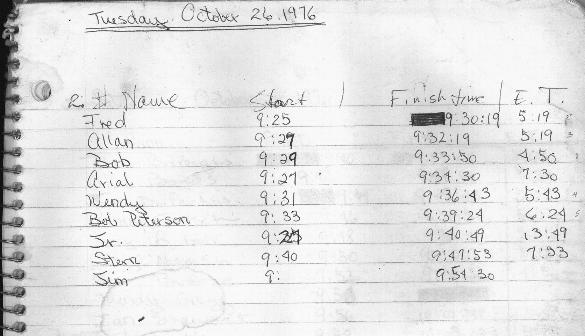 Tuesday, October 26, 1976
R. # Name Start Finish time E. T.
Fred 9:25 9:30:19 5:19
Allan 9:27 9:32:19 5:19
Bob 9:29 9:33:50 4:50
Arial 9:27 9:34:30 7:30
Wendy 9:31 9:36:43 5:43
Bob Peterson 9:33 9:39:24 6:24
Jr. 9:27 9:40:49 13:49
Stern 9:40 9:47:53 7:53
Jim 9: 9:54:30